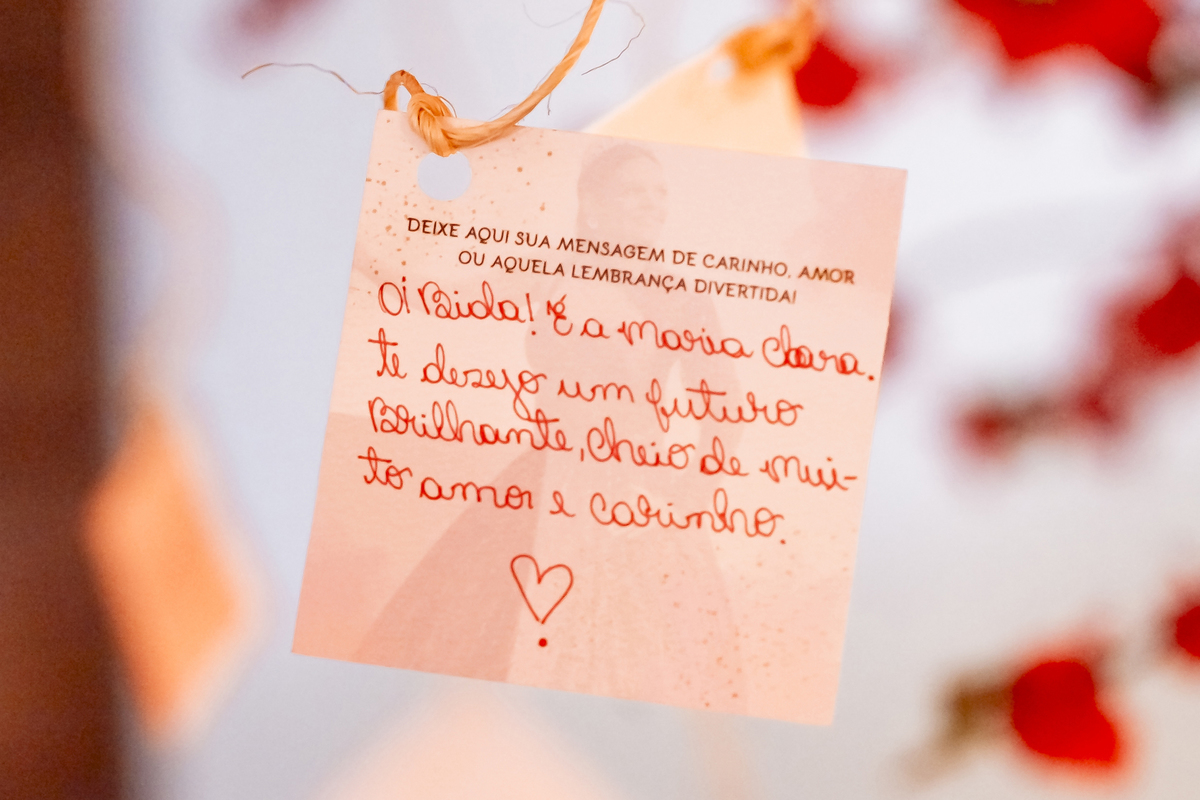 DEIXE AQUI SUA MENSAGEM DE CARINHO, AMOR
OU AQUELA LEMBRANÇA DIVERTIDA!
Oi Bida! É a Maria Clara.
te desejo um futuro
Brilhante, cheio de mui-
to amor e carinho.